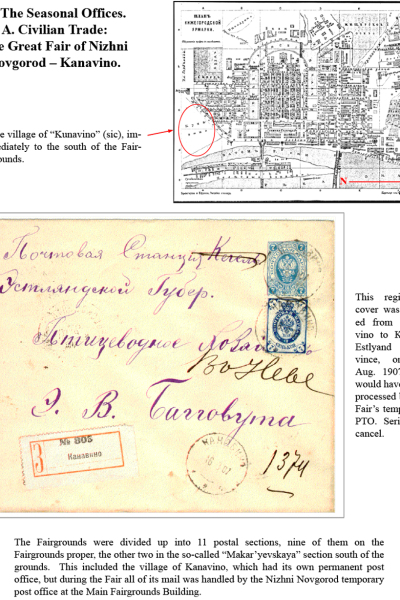 The Seasonal Offices.
A. Civilian Trade:
e Great Fair of Nizhni
ovgorod – Kanavino.
e village of “Kunavino” (sic), im-
ediately to the south of the Fair-
ounds.
ПЛАНЪ
НИЖЕГОРОДСКОЙ
ЯРМАРКИ.
N
Почтовая Станція Кегель
Эстляндской Губер.
Птицеводное Хозяй
Во Невѣ
Э. В. Багговута
З
№ 805
Канавино
КАНАВИНО
1374
This regi
cover was
ed from
vino to K
Estlyand
vince, or
Aug. 190
would have
processed b
Fair’s temp
PTO. Seri
cancel.
The Fairgrounds were divided up into 11 postal sections, nine of them on the
Fairgrounds proper, the other two in the so-called “Makar’yevskaya” section south of the
grounds. This included the village of Kanavino, which had its own permanent post
office, but during the Fair all of its mail was handled by the Nizhni Novgorod temporary
post office at the Main Fairgrounds Building.